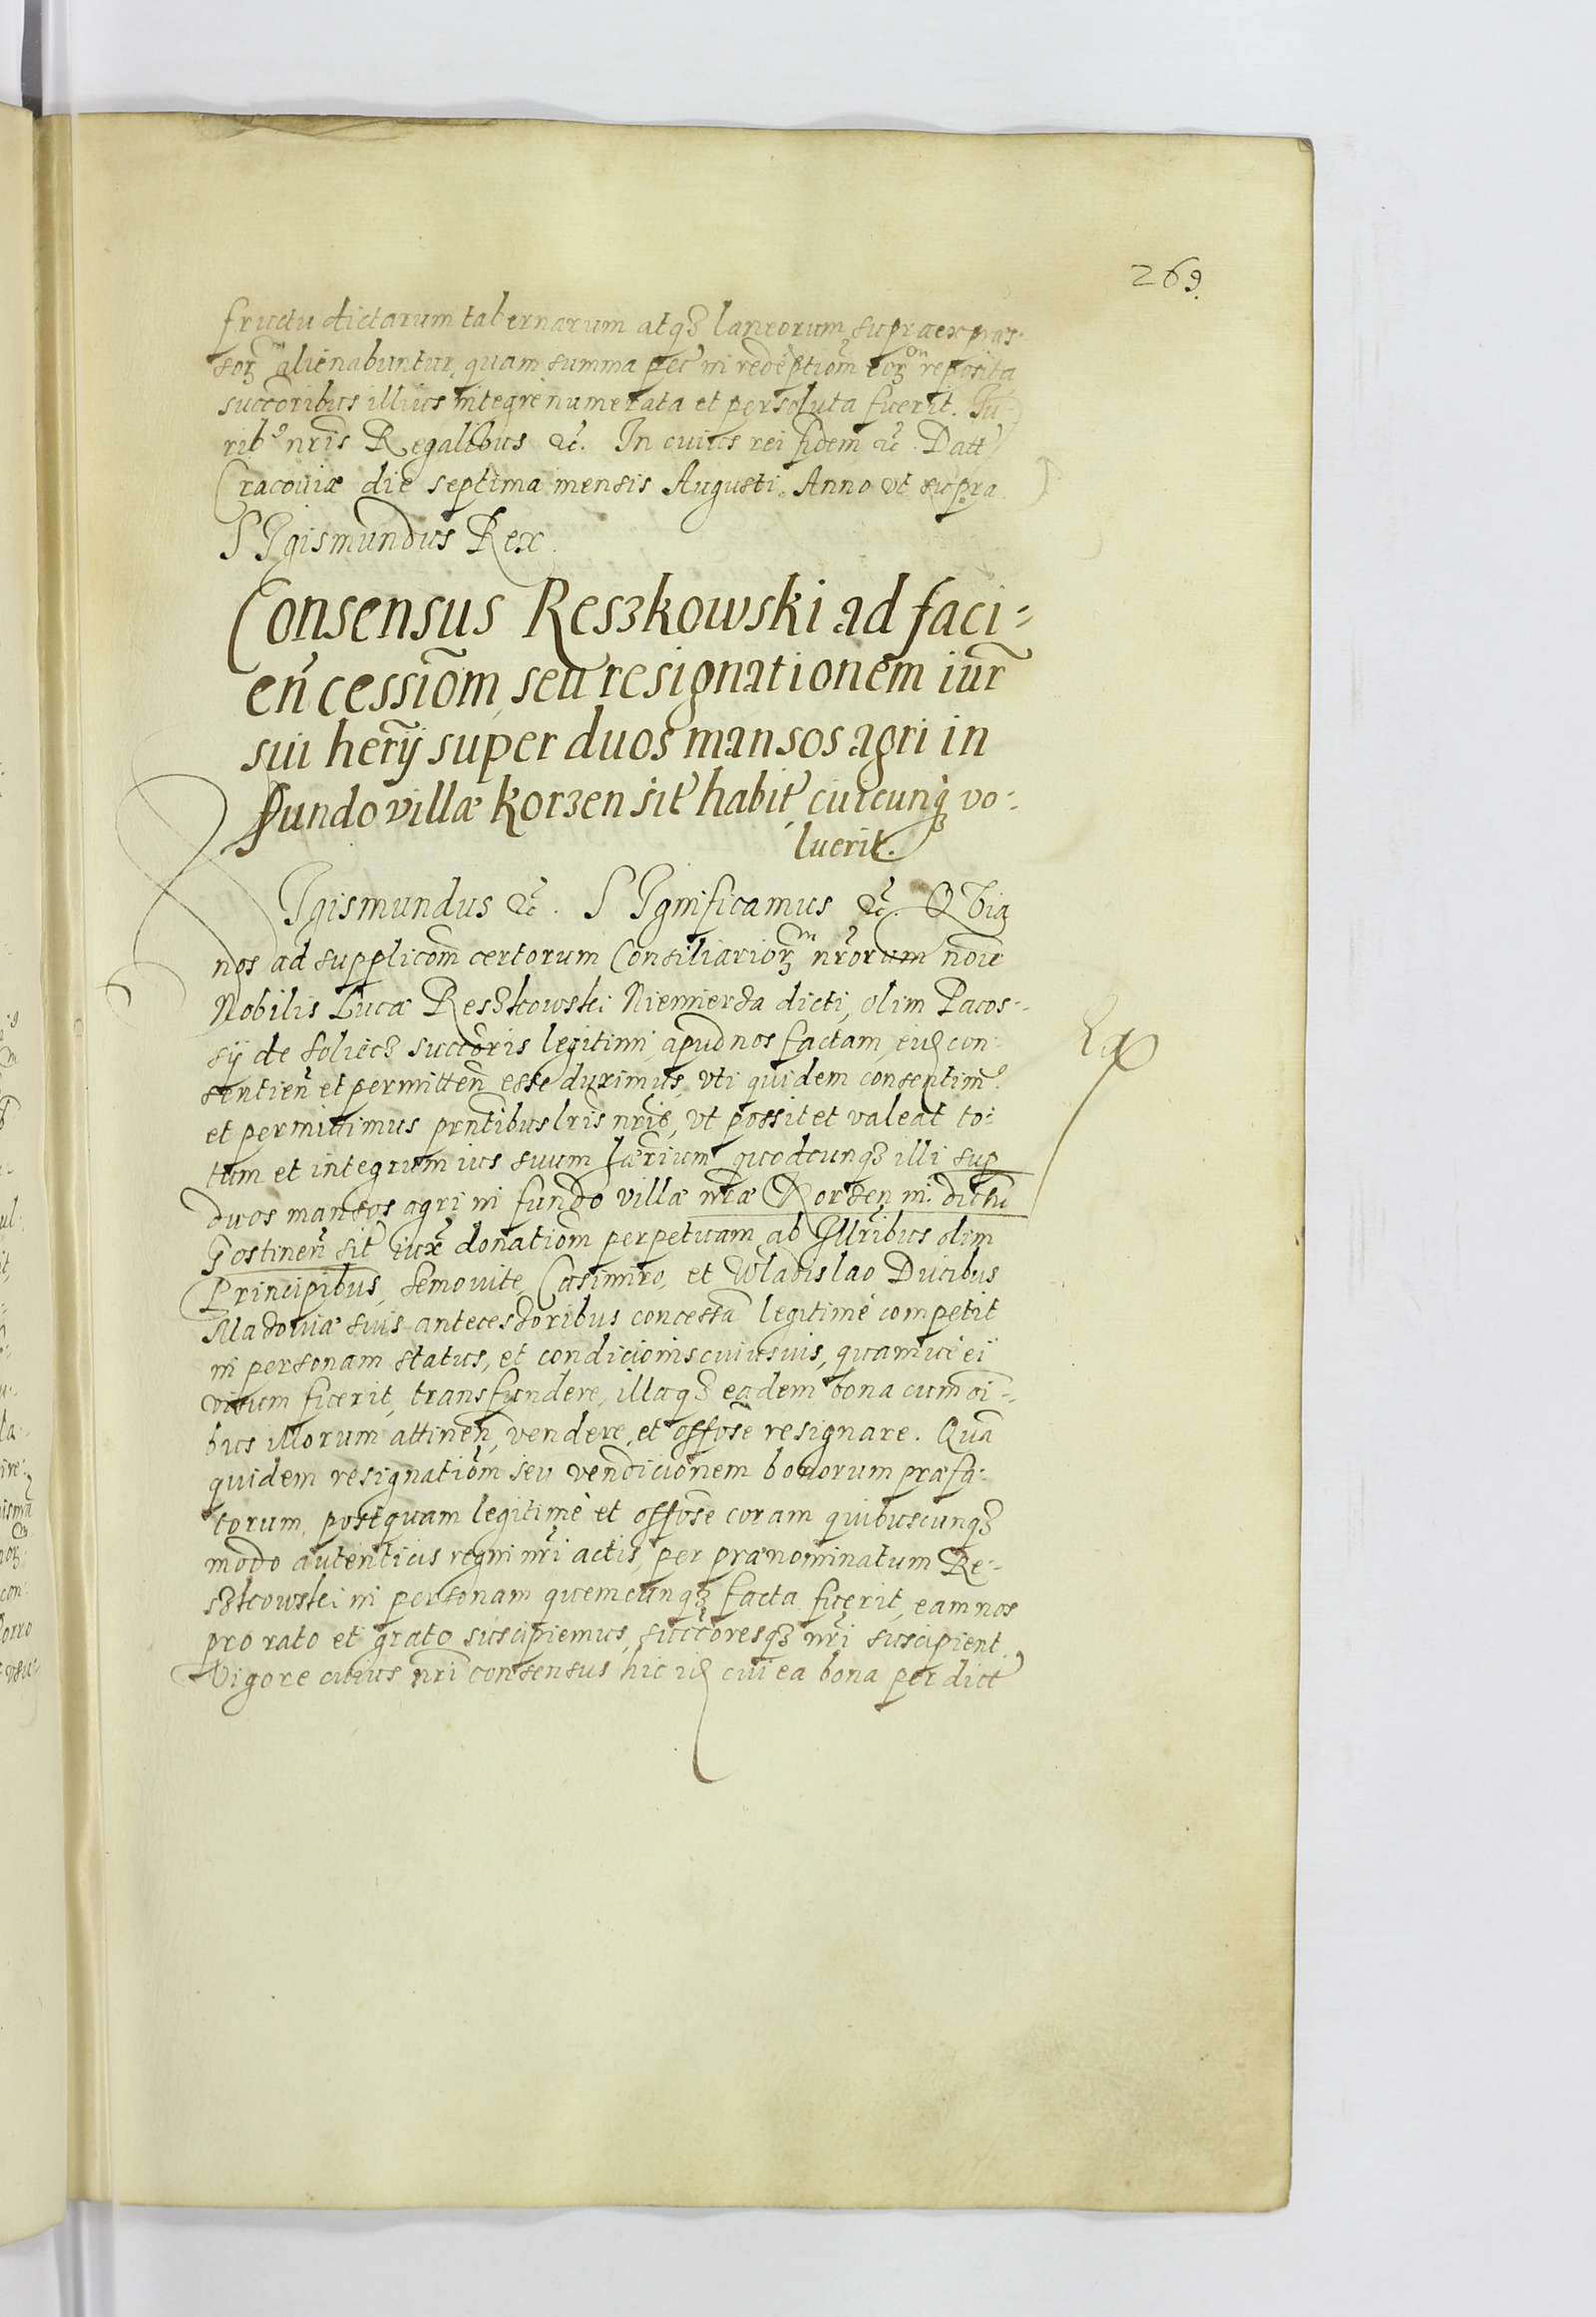 269.
fructu dictarum tabernarum atqȝ laneorum supraexpras-
soȝ alienabuntur, quam summa pec̃ in redẽptiom̃ eoȝ reposita
succõribus illius integrè numerata et persoluta fuerit. Iu-
rib⁹ nr̃is Regalibus &c̃. In cuius rei fidem &c̃. Datt̃
Cracouiæ die septima mensis Augusti. Anno vt supra.
SIgismundus Rex.
Consensus Resȝkowski ad faci-
eñ cessiõm, seu resignationem iur̃
sui herĩj super duos mansos agri in
fundo villæ Korȝen sit̃ habit̃, cuicunqȝ vo-
luerit.
Igismundus &c̃. SIgnificamus &c̃. Qvia
nos ad supplicom̃ certorum Consiliarioȝ nr̃orum noĩe
Nobilis Lucæ Resȝkowski Niemierȝa dicti, olim Pacos-
sÿ de soliecȝ succõris legitimi, apud nos factam, eid con-
sentieñ et permitteñ esse duximus, vti quidem consentim⁹
et permittimus prñtibus lr̃is nr̃is, vt possit et valeat to-
tum et integrum ius suum hærĩum quodcunqȝ illi sup
duos mansos agri in fundo villæ nr̃æ Korȝen in dictũ
Gostineñ sit̃ iuxt̃ donatiom̃ perpetuam ab Illr̃ibus olim
Principibus, Semouite, Casimiro, et Wladislao Ducibus
Maȝouiæ suis antecessoribus concessã legitimè competit
in personam status, et condicionis cuiusuis, quamuè ei
visum fuerit, transfundere, illaqȝ eadem bona cum oĩ-
bus illorum attineñ, vendere, et offõse resignare. Quã
quidem resignatiom̃ seu vendicionem bonorum præfa-
torum, postquam legitimè et offõse coram quibuscunqȝ
modo autenticis regni nr̃i actis, per prænominatum Re-
sȝkowski in personam quemcunqȝ facta fuerit, eam nos
pro rato et grato suscipiemus, succõresqȝ nr̃i suscipient.
Vigore cuius nr̃i consensus hic id cui ea bona per dict̃